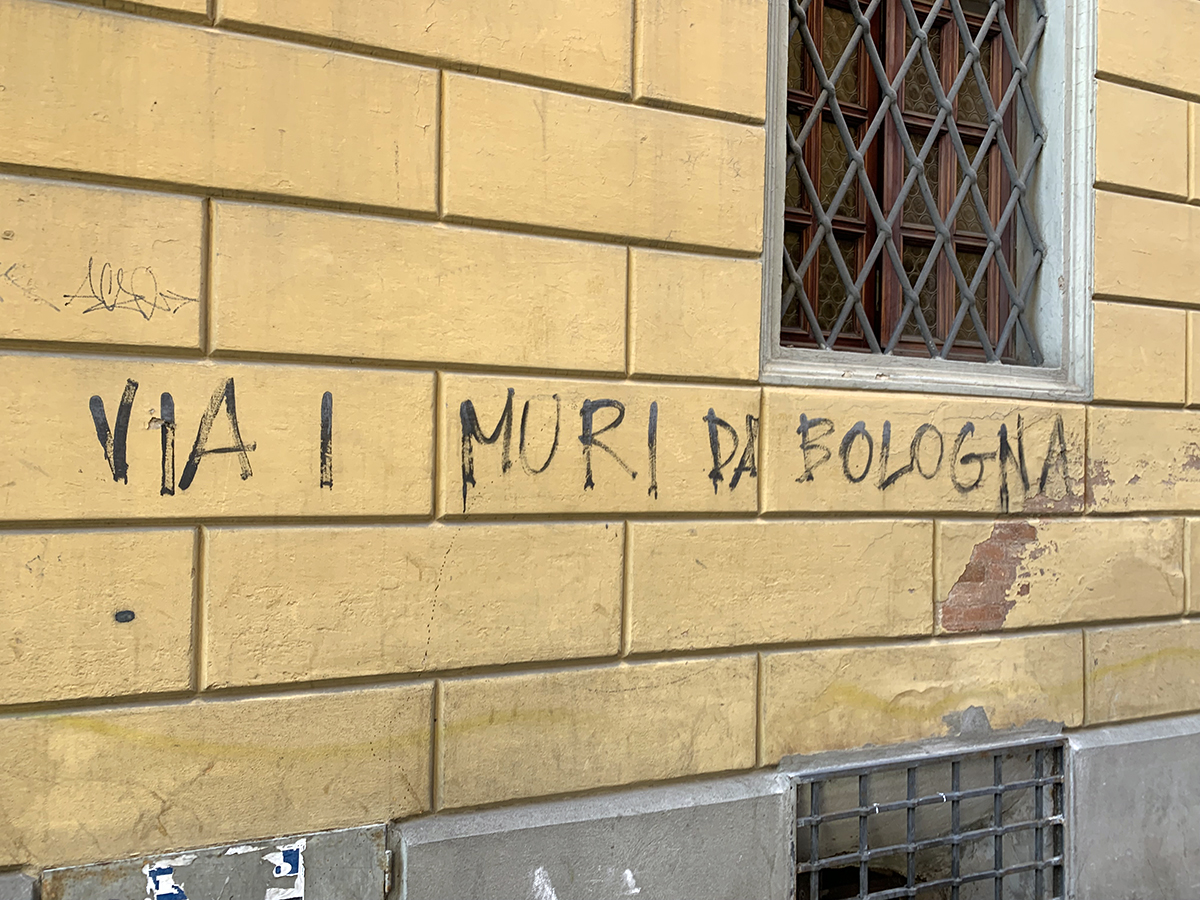 VIA I MURI DA BOLOGNA